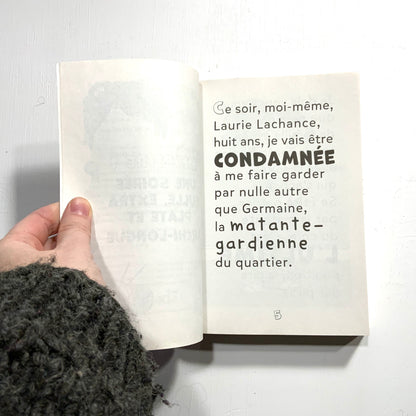 Ce soir, moi-même,
Laurie Lachance,
huit ans, je vais être
CONDAMNÉE
à me faire garder
par nulle autre
que Germaine,
la matante-
gardienne
du quartier.
5